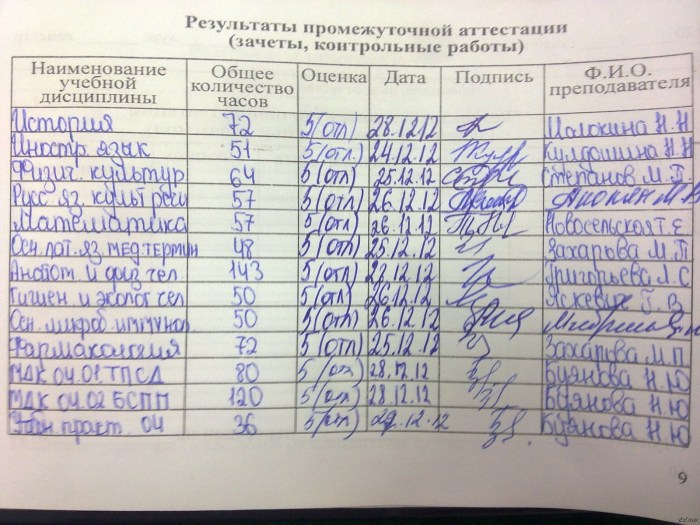 Результаты промежуточной аттестации
(зачеты, контрольные работы)
Наименование учебной дисциплины Общее количество часов Оценка Дата Подпись Ф.И.О. преподавателя
История 72 5(отл) 28.12.12 Молокина Н.Н
Иностр. язык 51 5(отл.) 24.12.12 Н.Н
Физич. культур 64 5(отл) 25.12.12 Степанов М.П.
Русс яз. культ речи 57 5(отл) 26.12.12
Математика 57 5(отл) 26.12.12 Новосельская Т.Е
Осн. лат. яз мед термин 48 5(отл) 25.12.12 Захарова М.П
Анатом. и физ чел. 143 5(отл) 22.12.12 Григорьева Л.С
Гигиен. и эколог чел 50 5(отл) 26.12.12 Яскевич Г.В
Осн. микроб. иммунол 50 5(отл) 26.12.12
Фармакология 72 5(отл) 25.12.12 Захарова М.П
МДК 04.01 ТПСД 80 5(отл) 28.12.12 Буянова Н.Ю
МДК 04.02 БСПП 120 5(отл) 28.12.12 Буянова Н.Ю
практ. 04 36 5(отл) 29.12.12 Буянова Н.Ю
9